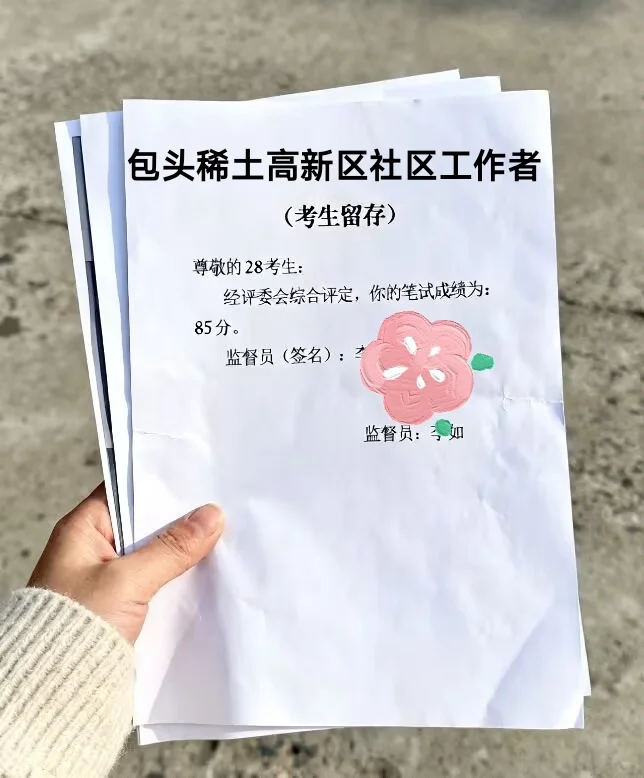 包头稀土高新区社区工作者
（考生留存）
尊敬的28考生：
经评委会综合评定，你的笔试成绩为：
85分。
监督员（签名）：
监督员：李 如